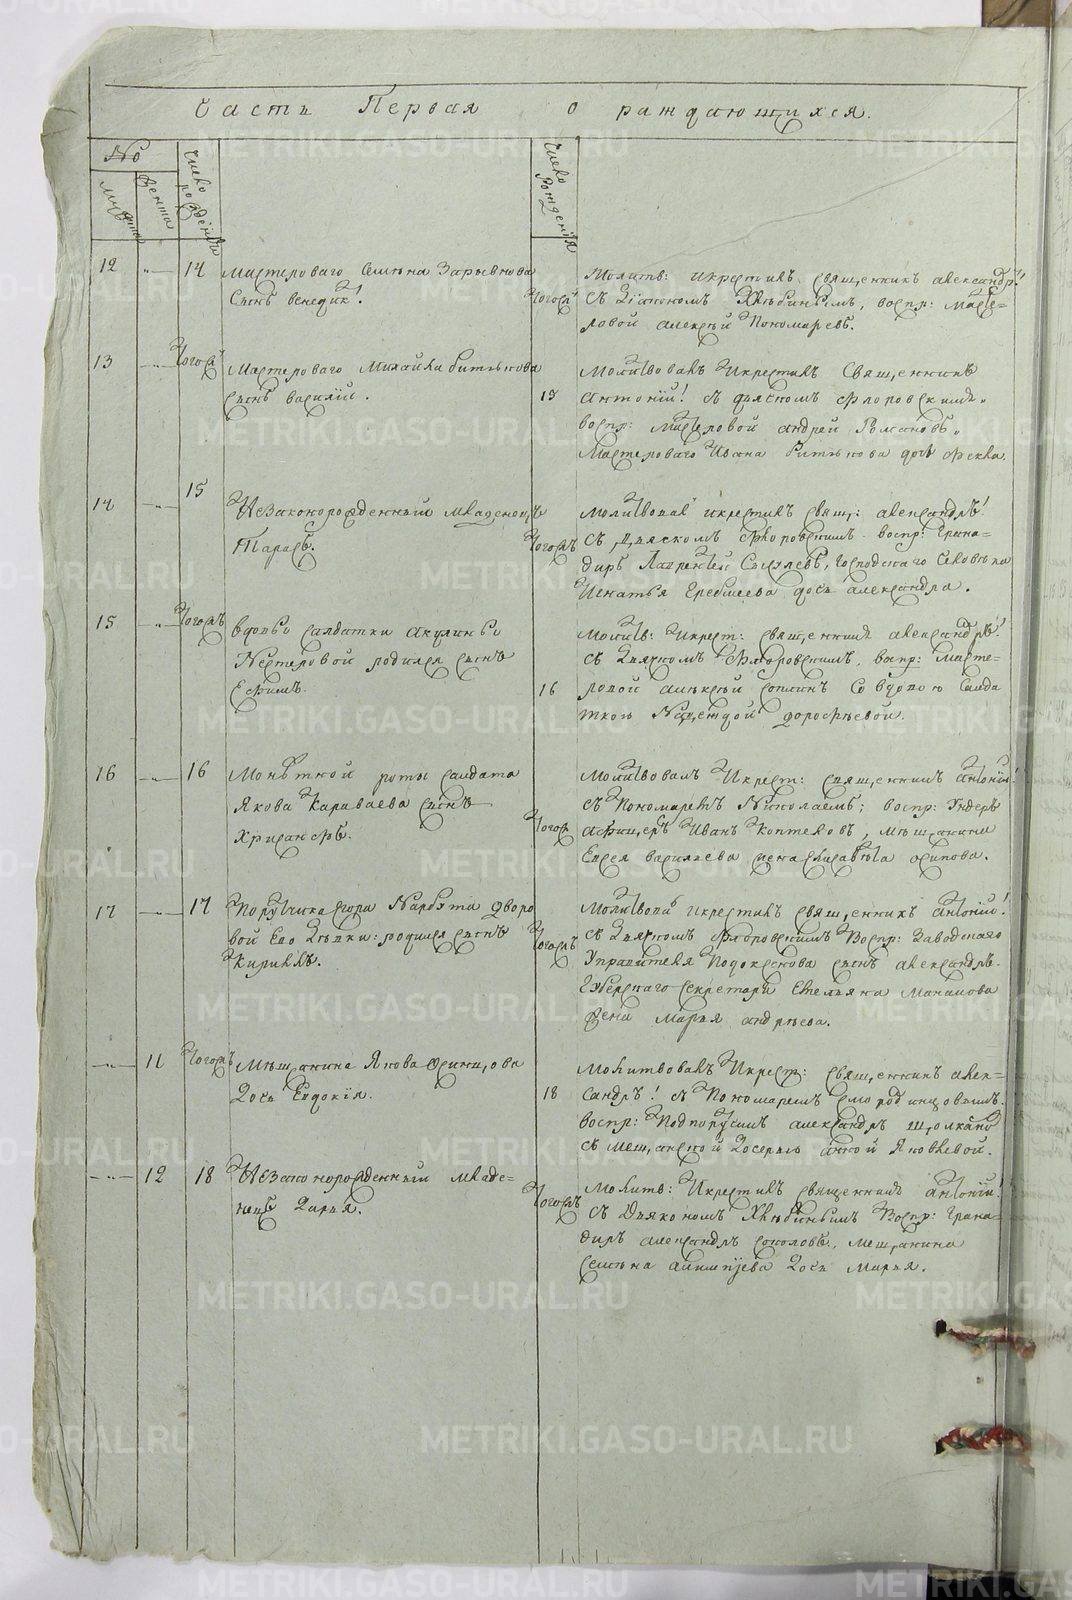 Часть Первая о раждающихся.
№
Число рожденія
мужска
женска
Число рожденія
12 14 мастероваго Семена
Сынъ венедик!
тогожъ
молитв: икрестилъ священникъ александръ!
съ Діакономъ Хлѣбинымъ, воспр: масте-
ровой алексѣй Пономаревъ.
13 тогожъ мастероваго Михаила битькова
сынъ василій.
молитвовалъ Икрестилъ Священникъ
антоній! съ дьяконом флоровскимъ.
воспр: мастеровой андрей Романовъ.
мастероваго Ивана битькова дочь Фекла
14 15 Незаконорожденный младенецъ
Тарасъ.
тогожъ
молитвовалъ икрестилъ свящ: александръ!
съ дьякономъ Флоровскимъ воспр: Грена-
диръ Лаврентей
Игнатья дочь александра.
15 тогожъ вдовы салдатки акулины
Нестеровой родился сынъ
Ефимъ.
16
молитв: Икрест: священникъ александръ!
съ Дьякономъ Флоровскимъ, воспр: масте-
ровой алексѣй совдовою Салда
ткою Надеждой дорофѣевой.
16 16 Монѣтной роты салдата
Якова Караваева сынъ
Хрисанфъ.
тогожъ
молитвовалъ Икрест: священникъ антоній!
съ Пономаремъ Николаемъ; воспр: Ундеръ
афицеръ Иванъ Коптеловъ, мѣщанина
васильева жена осипова.
17 17 Поручика Нарбута дворо
вой Его Дѣвки: родился сынъ
Кирилъ.
тогожъ
молитвовалъ икрестилъ священникъ антоній!
съ Дьякономъ Флоровскимъ воспр: Заводскаго
Управителя сынъ александръ.
Губерскаго Секретаря Емельяна
жена Марья андрѣева.
11 тогожъ мѣщанина Якова
Дочь Евдокія.
18
молитвовалъ Икрест: священникъ алек-
сандръ! съ Пономаремъ Смородинцовымъ.
воспр: Подпорутчикъ александръ
съ мещанской Дочерью анной Яковлевой.
12 18 Незаконорожденный младе-
нецъ Дарья.
тогожъ
молитв: Икрестилъ священникъ антоній!
съ Дьякономъ Хлѣбинымъ воспр: Грена-
диръ александръ соколовъ, мещанина
семена Дочь марья.
METRIKI.GASO-URAL.RU